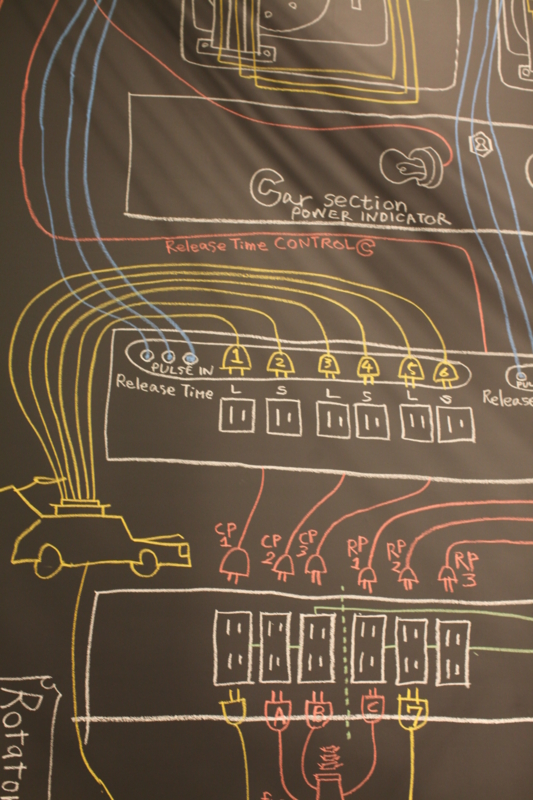 8
Car section
POWER INDICATOR
Release Time CONTROL C
1 2 3 4 5 6
PULSE IN
Release Time L S L S L S
CP 1 CP 2 CP 3 RP 1 RP 2 RP 3
A B C 7
Rotato